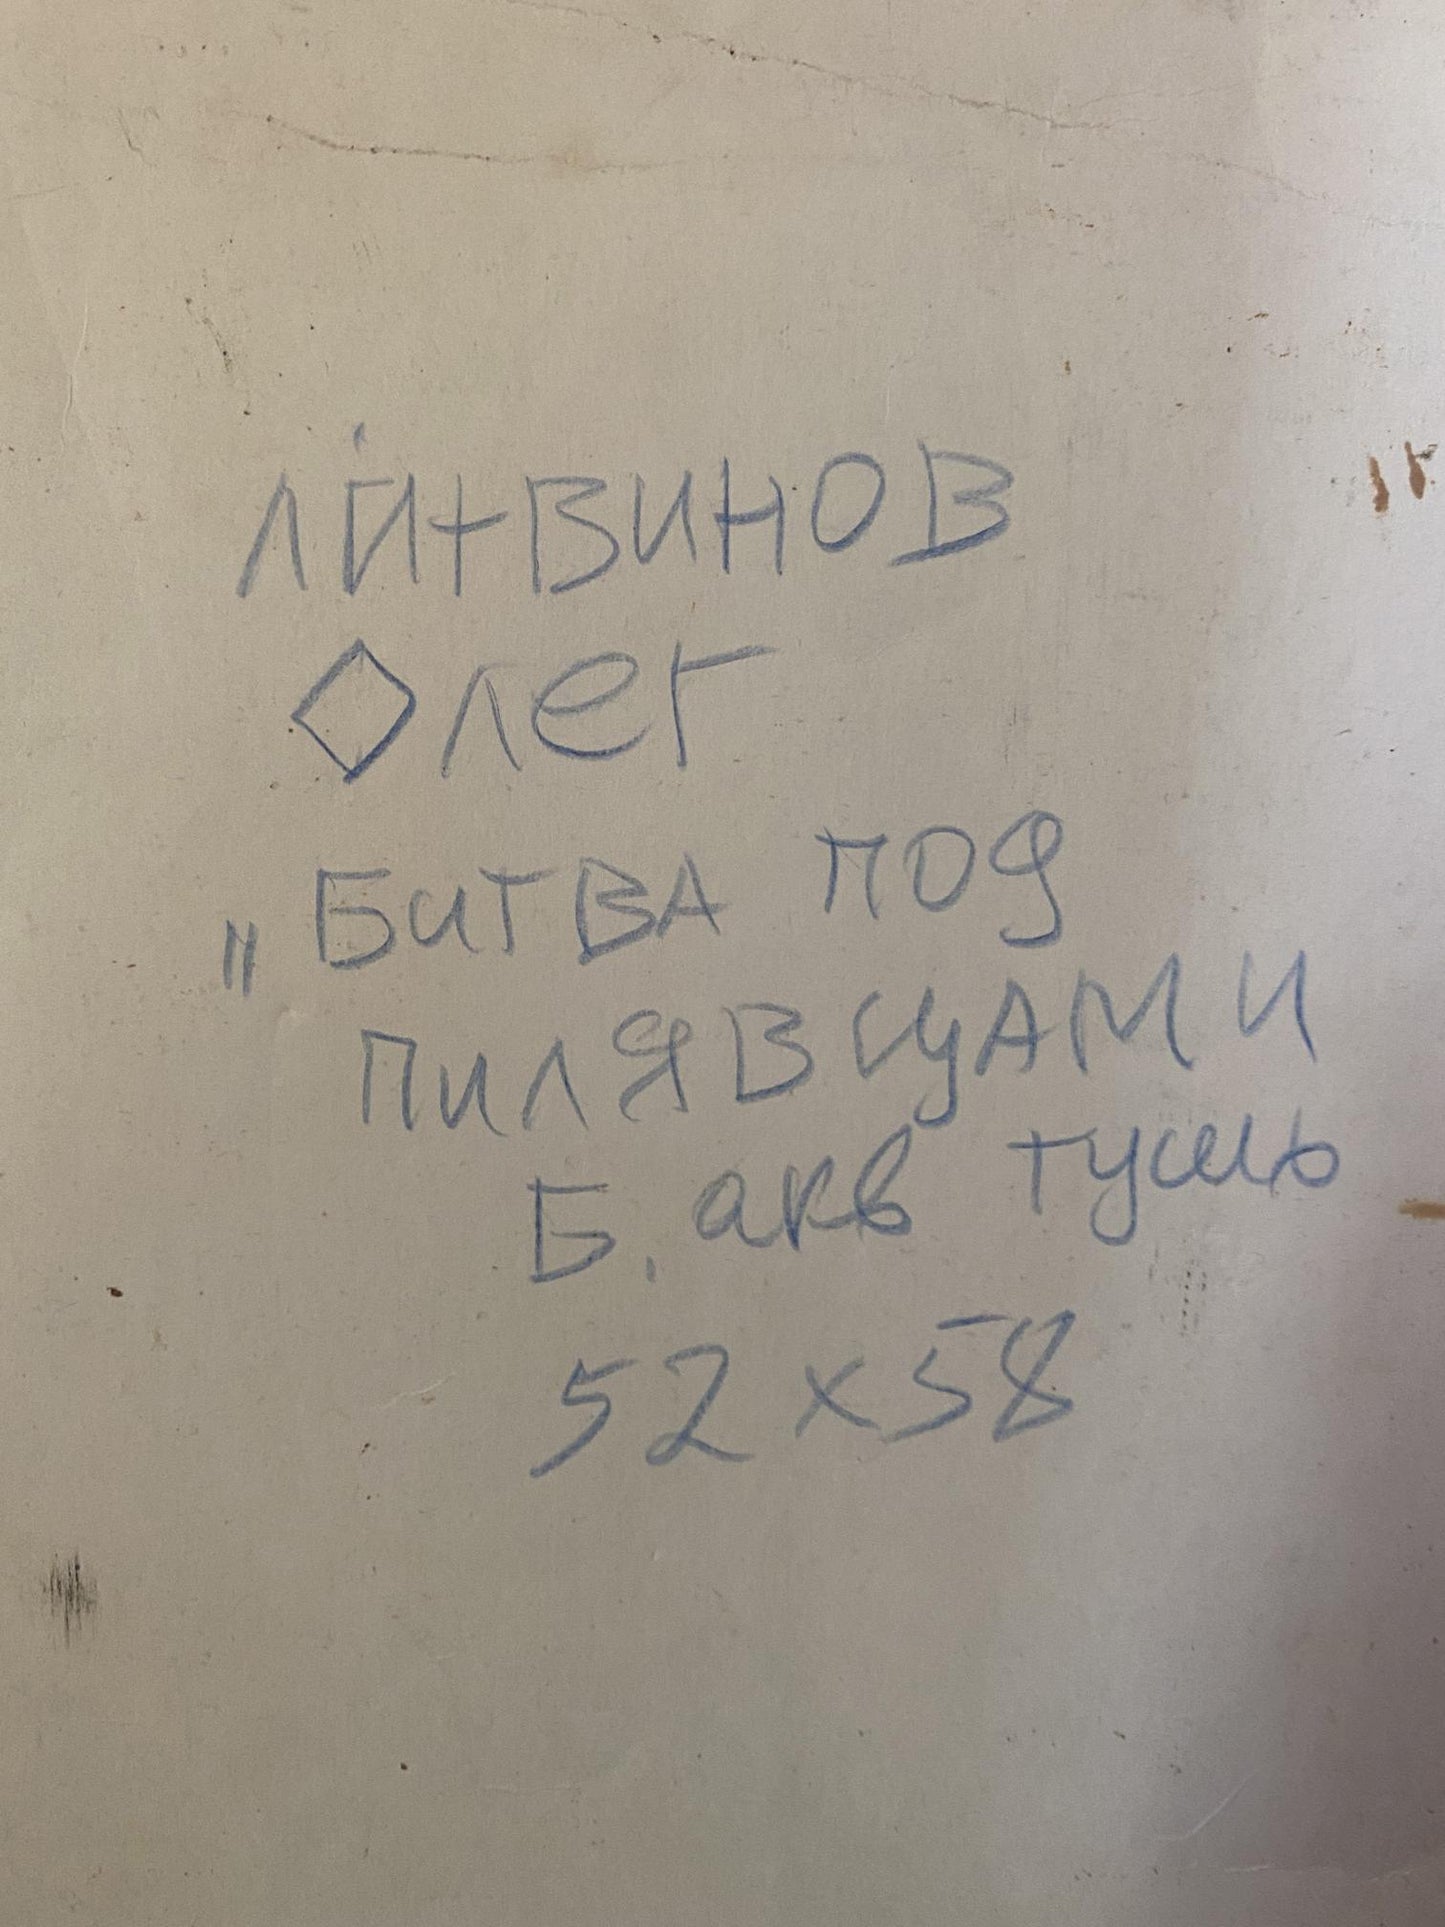 ЛИТВИНОВ
ОЛЕГ
„БИТВА ПОД
ПИЛЯВЦАМИ
Б. акв тушь
52 x 58